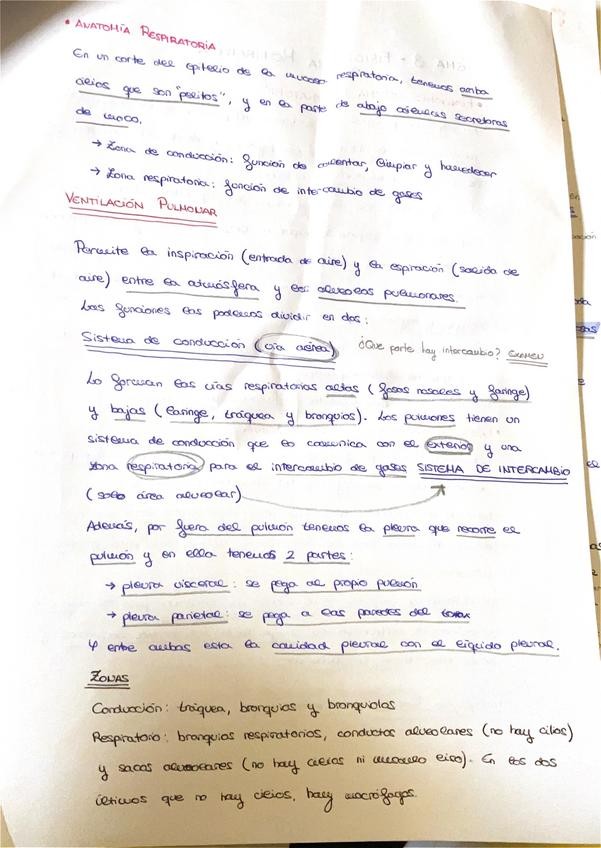 • ANATOMÍA RESPIRATORIA
En un corte del epitelio de la mucosa respiratoria, tenemos arriba
cilios que son "pelitos", y en la parte de abajo células secretoras
de moco.
→ Zona de conducción: función de calentar, limpiar y humedecer
→ Zona respiratoria: función de intercambio de gases
VENTILACIÓN PULMONAR
Permite la inspiración (entrada de aire) y la espiración (salida de
aire) entre la atmósfera y los alveolos pulmonares.
Las funciones las podemos dividir en dos:
Sistema de conducción (vía aérea) ¿Que parte hay intercambio? EXAMEN
Lo forman las vías respiratorias altas (fosas nasales y faringe)
y bajas (laringe, tráquea y bronquios). Los pulmones tienen un
sistema de conducción que lo comunica con el exterior y una
zona respiratoria para el intercambio de gases SISTEMA DE INTERCAMBIO
(solo área alveolar)
Además, por fuera del pulmón tenemos la pleura que recorre el
pulmón y en ella tenemos 2 partes:
→ pleura visceral: se pega al propio pulmón
→ pleura parietal: se pega a las paredes del tórax
Y entre ambas esta la cavidad pleural con el líquido pleural.
ZONAS
Conducción: tráquea, bronquios y bronquiolos
Respiratorio: bronquios respiratorios, conductos alveolares (no hay cilios)
y sacos alveolares (no hay cilios ni musculo liso). En los dos
últimos que no hay cilios, hay macrófagos.